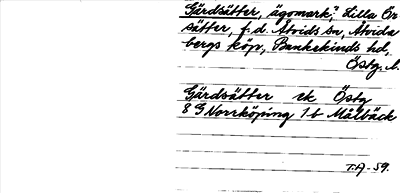 Gärdsätter, "ägomark", Lilla Ör
sätter, f.d. Åtvids sn, Åtvida
bergs köp, Bankekinds hd,
Östg. l.
Gärdsätter ek Östg
8 G Norrköping 1 b Målbäck
T.A - 59.